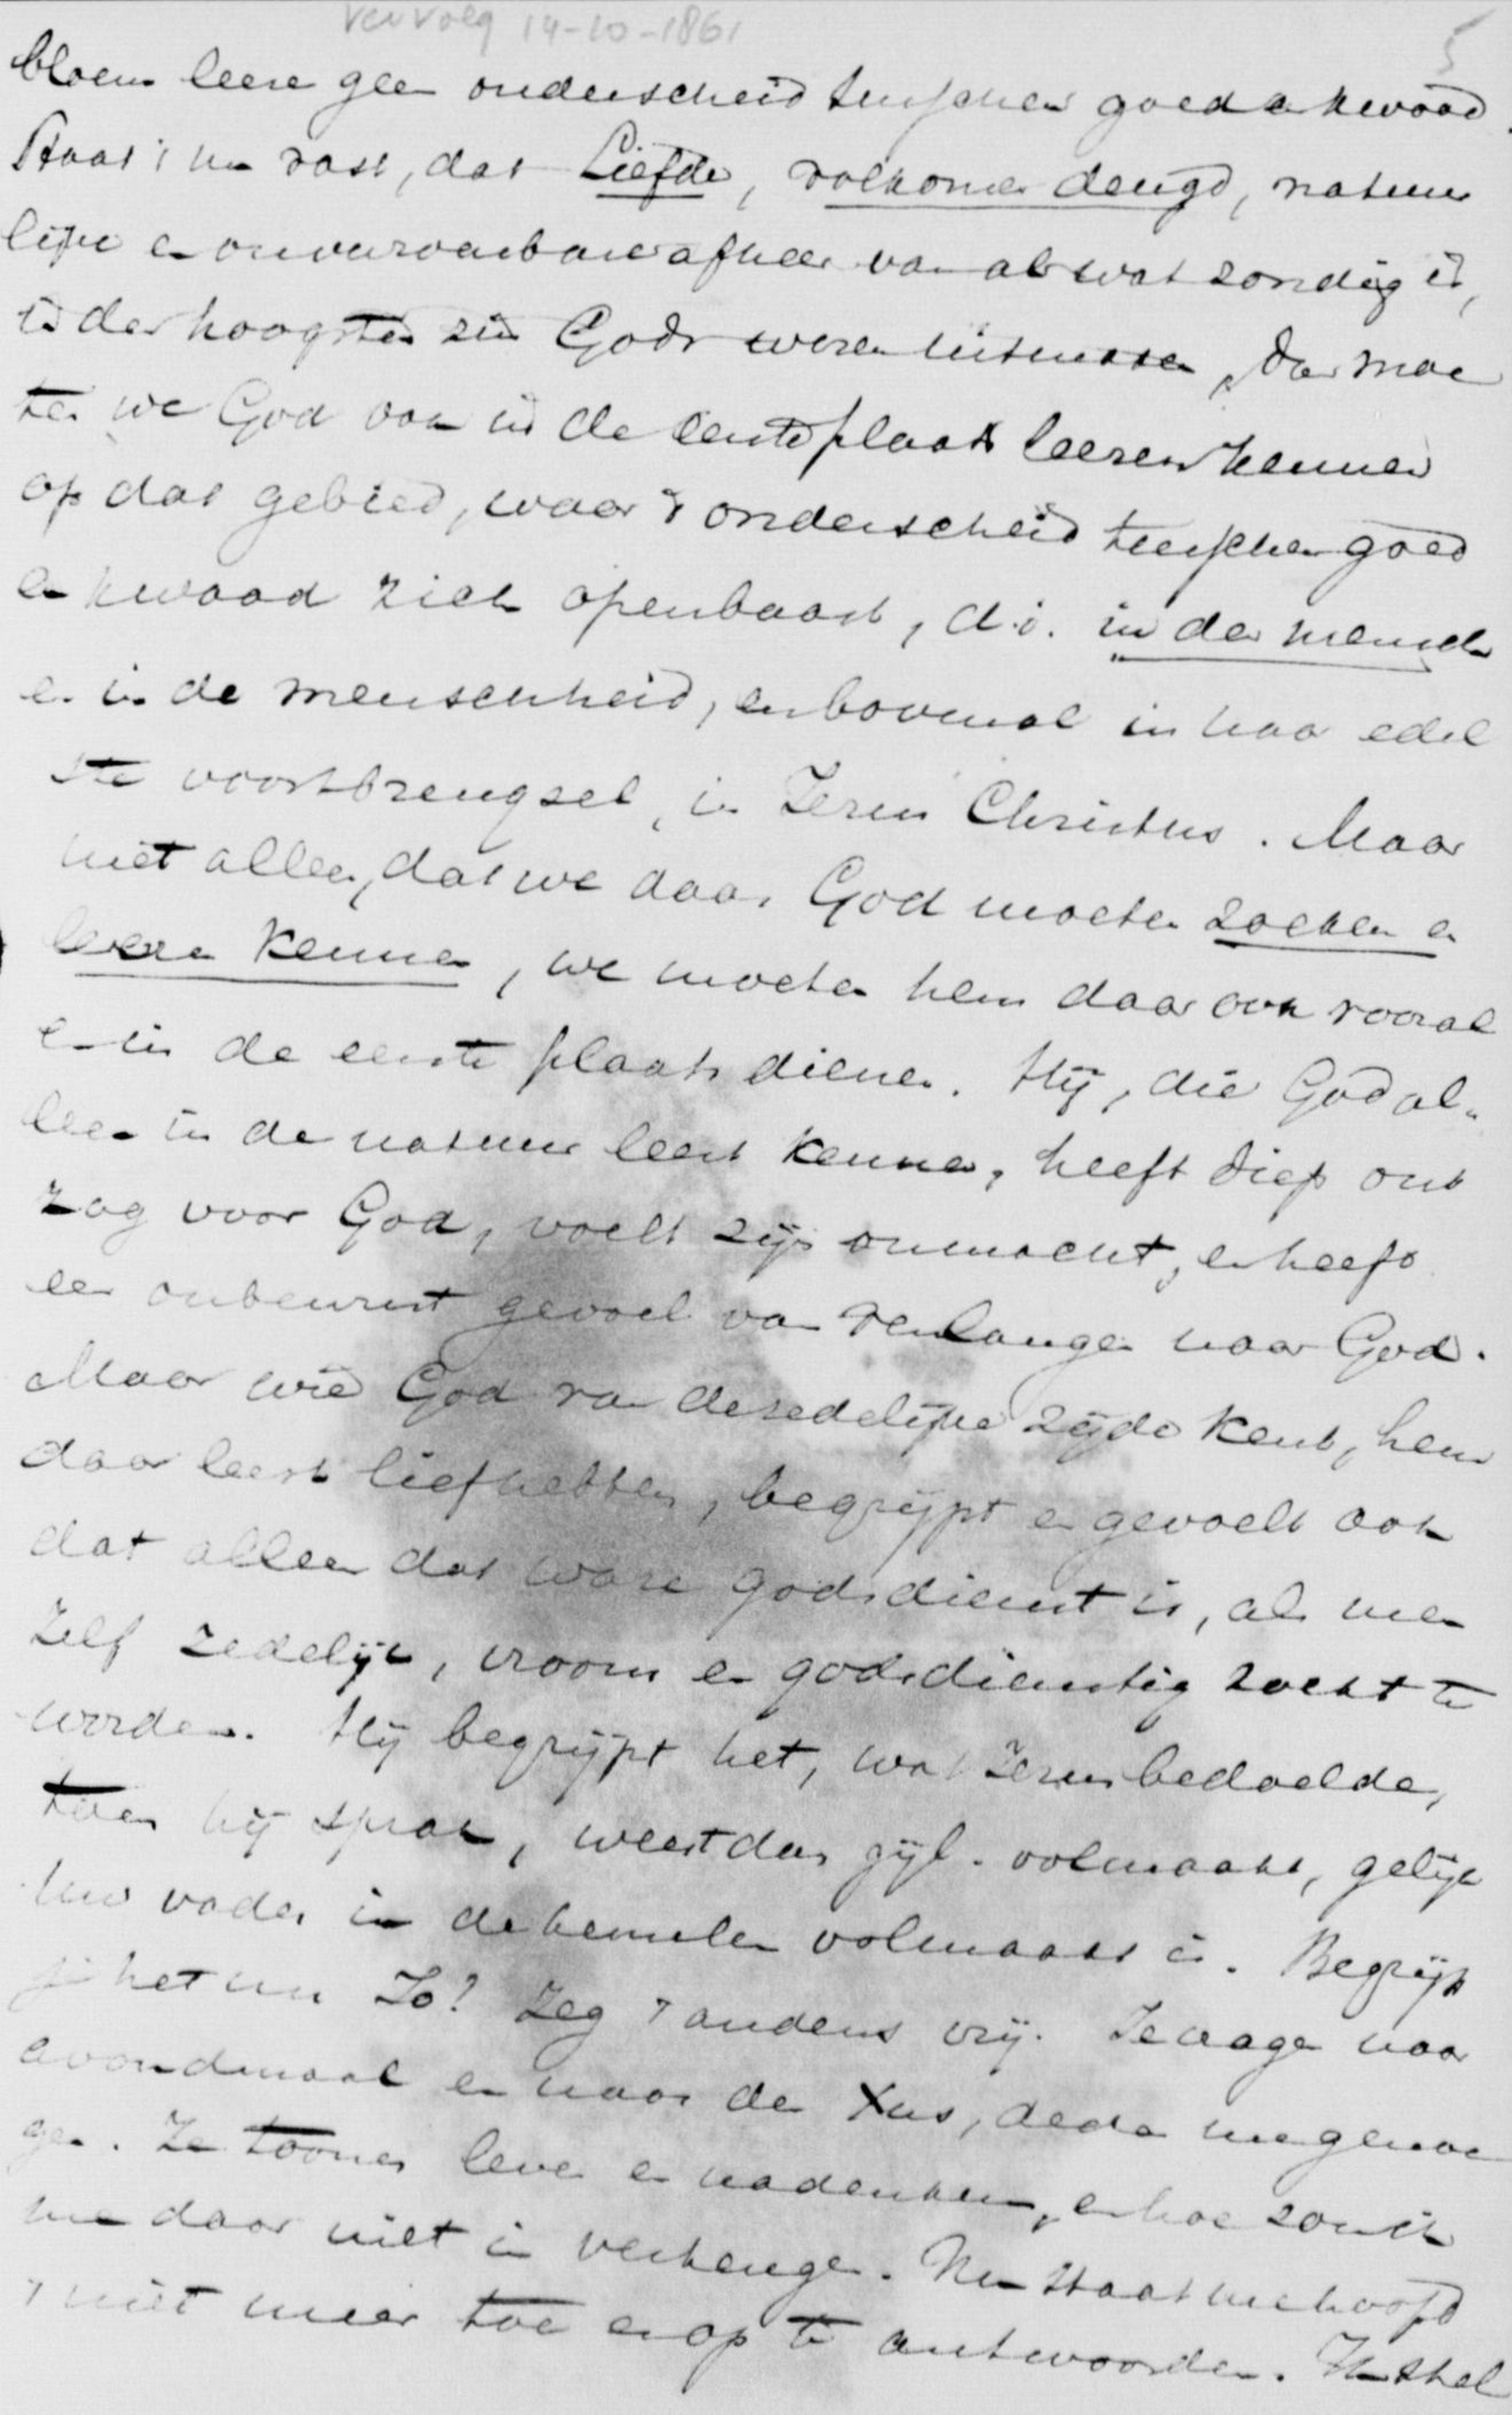 vervolg 14-10-1861
5
bloem leere geen onderscheid tusschen goed en kwaad.
Staat 't nu vast, dat Liefde, volkomen deugd, natuur
lijke en onveranbare afkeer van al wat zondig is,
in den hoogsten zin Gods wezen uitmaken, dan moe
ten we God ook in de eerste plaats leeren kennen
op dat gebied, waar 't onderscheid tusschen goed
en kwaad zich openbaart, d.i. in den mensch
en in de menschheid, en bovenal in haar edel
ste voortbrengsel, in Jezus Christus. Maar
niet alleen, dat we daar God moeten zoeken en
leeren kennen, we moeten hem daar ook vooral
en in de eerste plaats dienen. Hij, die God al„
leen in de natuur leert kennen, heeft diep ont
zag voor God, voelt zijn onmacht, en heeft
een onbewust gevoel van verlangen naar God.
Maar wie God van de zedelijke zijde kent, hem
daar leert liefhebben, begrijpt en gevoelt ook
dat alleen dat ware godsdienst is, als men
zelf zedelijk, vroom en godsdienstig zoekt te
worden. Hij begrijpt het, wat Jezus bedoelde,
toen hij sprak, weest dan gijl. volmaakt, gelijk
Uw vader in de hemelen volmaakt is. Begrijp
je het nu Jo? Zeg 't anders vrij. Je vragen naar
avondmaal en naar den Xus, deden me genoe
gen. Ze toonen leven en nadenken, en hoe zou ik
me daar niet in verheugen. Nu staat me hoofd
't niet meer toe erop te antwoorden. Ik zal